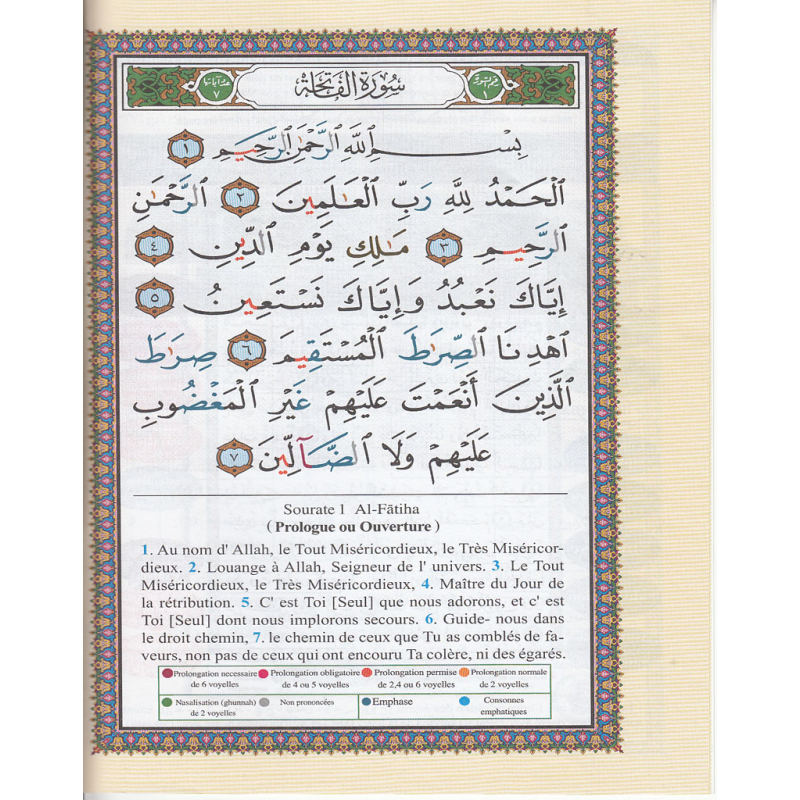 عدد آياتها ٧
سُورَةُ الفَاتِحَة
رقم السورة ١
بِسْمِ ٱللَّهِ ٱلرَّحْمَٰنِ ٱلرَّحِيمِ ١
ٱلْحَمْدُ لِلَّهِ رَبِّ ٱلْعَٰلَمِينَ ٢ ٱلرَّحْمَٰنِ
ٱلرَّحِيمِ ٣ مَٰلِكِ يَوْمِ ٱلدِّينِ ٤
إِيَّاكَ نَعْبُدُ وَإِيَّاكَ نَسْتَعِينُ ٥
ٱهْدِنَا ٱلصِّرَٰطَ ٱلْمُسْتَقِيمَ ٦ صِرَٰطَ
ٱلَّذِينَ أَنْعَمْتَ عَلَيْهِمْ غَيْرِ ٱلْمَغْضُوبِ
عَلَيْهِمْ وَلَا ٱلضَّآلِّينَ ٧
Sourate 1 Al-Fātiha
( Prologue ou Ouverture )
1. Au nom d' Allah, le Tout Miséricordieux, le Très Miséricor-
dieux. 2. Louange à Allah, Seigneur de l' univers. 3. Le Tout
Miséricordieux, le Très Miséricordieux, 4. Maître du Jour de
la rétribution. 5. C' est Toi [Seul] que nous adorons, et c' est
Toi [Seul] dont nous implorons secours. 6. Guide- nous dans
le droit chemin, 7. le chemin de ceux que Tu as comblés de fa-
veurs, non pas de ceux qui ont encouru Ta colère, ni des égarés.
Prolongation necessaire
de 6 voyelles
Prolongation obligatoire
de 4 ou 5 voyelles
Prolongation permise
de 2,4 ou 6 voyelles
Prolongation normale
de 2 voyelles
Nasalisation (ghunnah)
de 2 voyelles
Non prononcées
Emphase
Consonnes
emphatiques